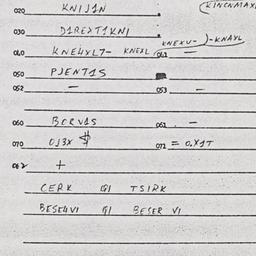 020 KNIJ1N (KINCNMAX
030 D1REXT1KNI
040 KNE4YL7- KNEXL KNEKU- )-KNAYL
041 —
050 PJENT1S
052 — 053 —
060 BERV1S 061 —
070 OJ3X $ 071 = 0.X1T
062 +
CERK GI TSIRK
BESE4VI GI BESER VI